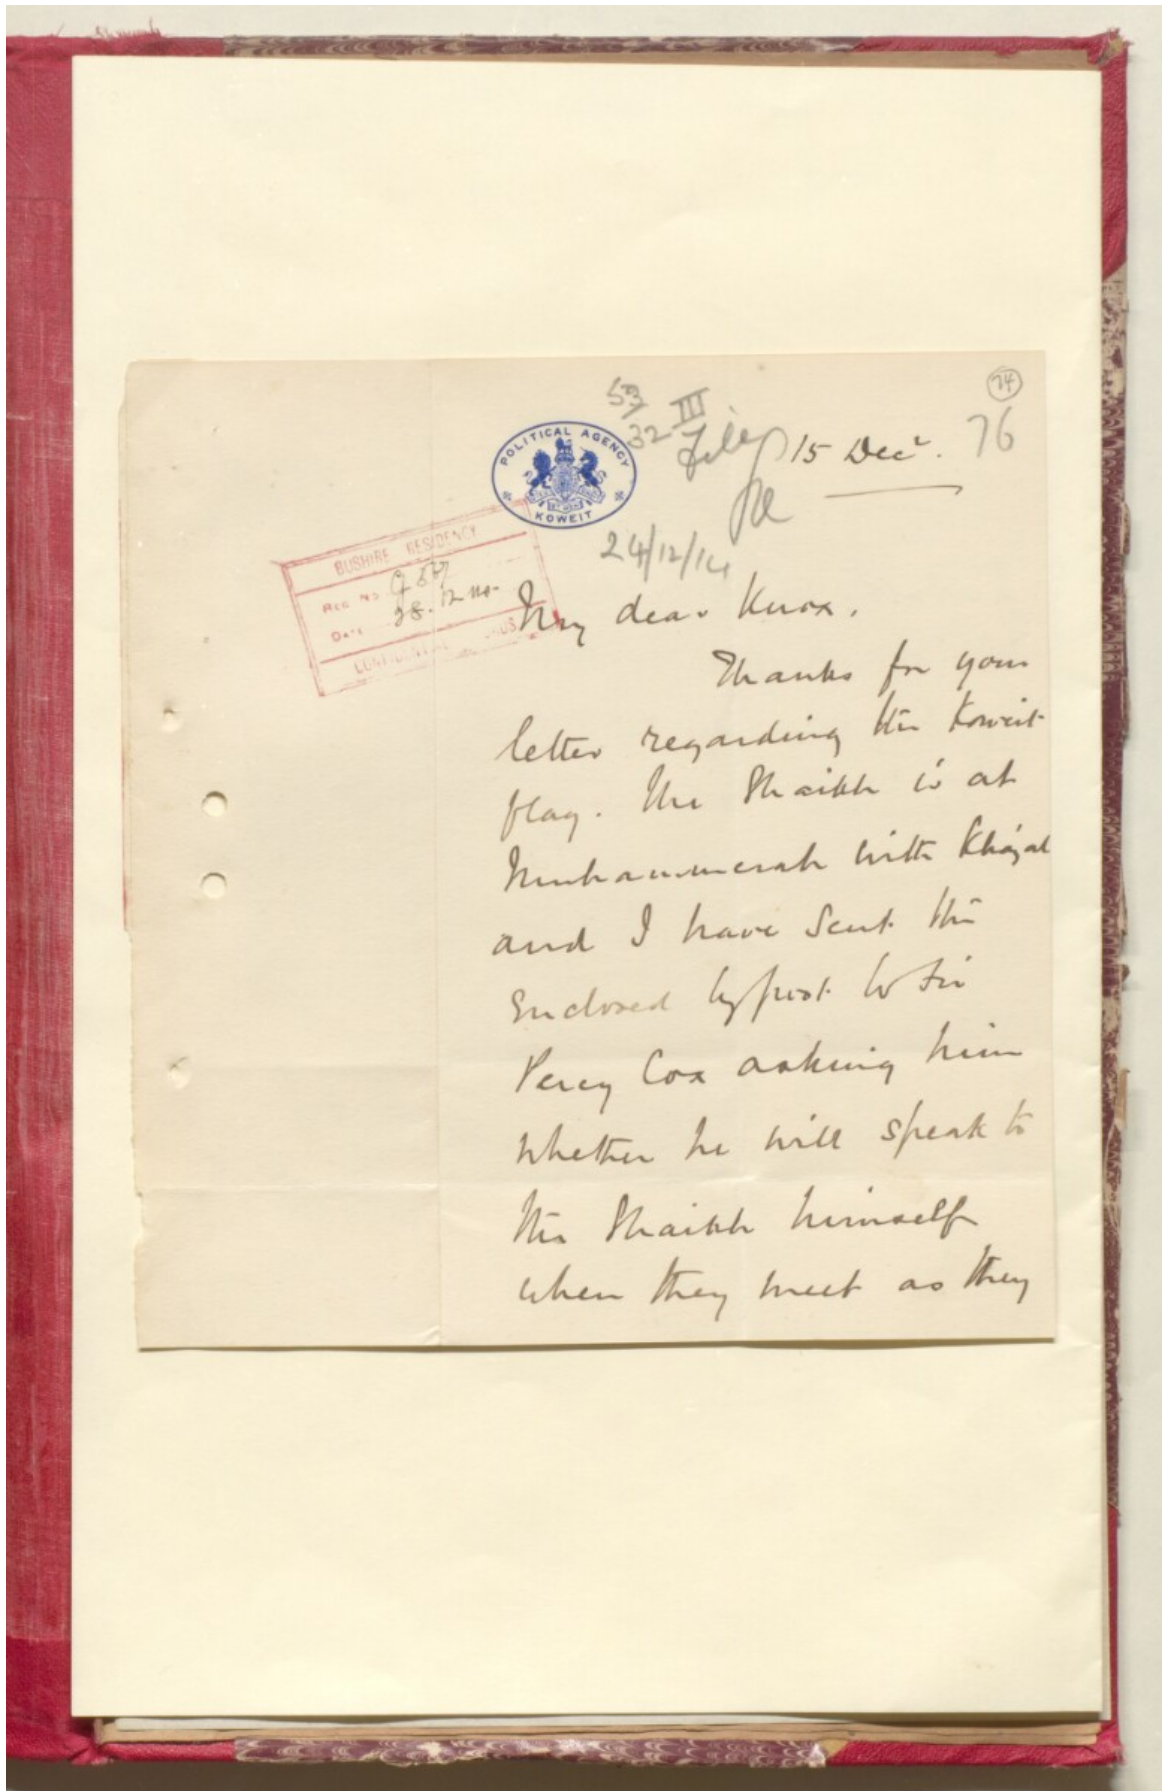 74
76
53
32 III
File
15 Decr.
24/12/14
POLITICAL AGENCY
KOWEIT
BUSHIRE RESIDENCY
REG. No.
Date 28.12.
CONFIDENTIAL
My dear Knox.
Thanks for your
letter regarding the Koweit
flag. The Shaikh is at
Muhammerah with Khazal
and I have sent the
enclosed by post to Sir
Percy Cox asking him
whether he will speak to
the Shaikh himself
when they meet as they